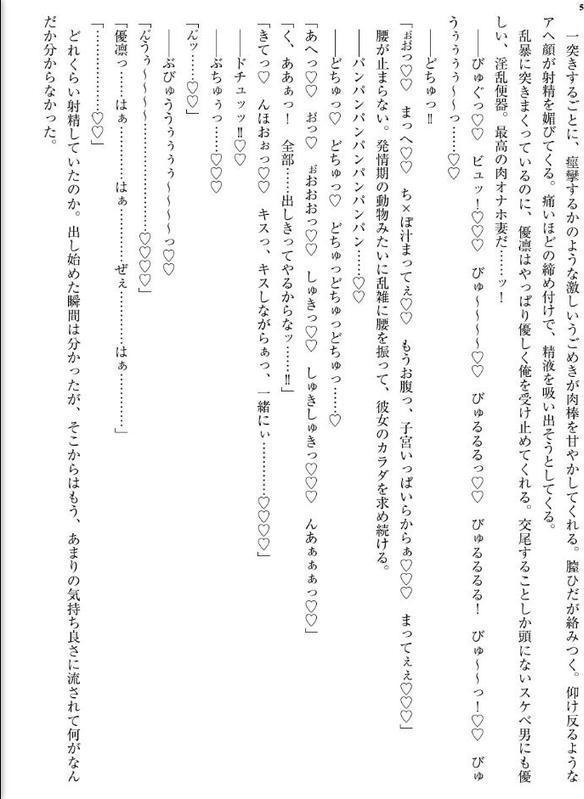 5
一突きするごとに、痙攣するかのような激しいうごめきが肉棒を甘やかしてくれる。膣ひだが絡みつく。仰け反るような
アヘ顔が射精を媚びてくる。痛いほどの締め付けで、精液を吸い出そうとしてくる。
乱暴に突きまくっているのに、優凛はやっぱり優しく俺を受け止めてくれる。交尾することしか頭にないスケベ男にも優
しい、淫乱便器。最高の肉オナホ妻だ……ッ!
――びゅぐっ♡♡ ビュッ!♡♡♡ びゅ~~~~♡♡ びゅるるるっ♡♡ びゅるるるる! びゅ~~っ!♡♡ びゅ
うぅぅぅぅ~~っ……♡♡
――どちゅっ!!
「ぉおっ♡♡ まっへ♡♡ ち×ぽ汁まってぇ♡♡ もうお腹っ、子宮いっぱいらからぁ♡♡♡ まってぇぇ♡♡♡」
腰が止まらない。発情期の動物みたいに乱雑に腰を振って、彼女のカラダを求め続ける。
――パンパンパンパンパンパンパン……♡♡
――どちゅっ♡ どちゅっ♡ どちゅっどちゅっどちゅっ……♡
「あへっ♡♡ おっ♡ ぉおおおっ♡♡ しゅきっ♡♡ しゅきしゅきっ♡♡♡ んあぁぁぁっ♡♡」
「く、ああぁっ! 全部……出しきってやるからなッ……!!」
――ドチュッッ!!♡♡
「きてっ♡ んほおぉっ♡♡ キスっ、キスしながらぁっ、一緒にぃ…………♡♡♡♡」
――ぶちゅぅっ……♡♡♡
「んッ……♡♡」
――ぶびゅううぅぅぅぅ~~~~っ♡♡
「んうぅ~~~~………………♡♡♡♡」
「優凛っ……はぁ…………はぁ…………ぜぇ…………はぁ…………」
「……………♡♡」
どれくらい射精していたのか。出し始めた瞬間は分かったが、そこからはもう、あまりの気持ち良さに流されて何がなん
だか分からなかった。